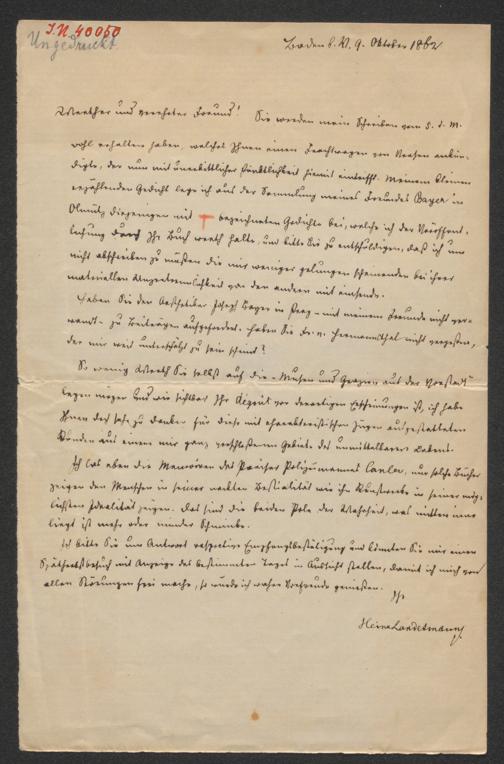 I.N. 40050
Ungedruckt
Baden b. W. 9. Oktober 1862
Werther und verehrter Freund! Sie werden mein Schreiben vom 5. d. M.
wohl erhalten haben, welches Ihnen einen Frachtwagen von Versen ankün-
digte, der nun mit unerbittlicher Pünktlichkeit hiemit eintrifft. Meinem kleinen
erzählenden Gedicht lege ich aus der Sammlung meines Freundes Bayer in
Olmütz diejenigen mit † bezeichneten Gedichte bei, welche ich der Veröffent-
lichung durch Ihr Buch werth halte, und bitte Sie zu entschuldigen, daß ich um
nicht abschreiben zu müßen die mir weniger gelungen scheinenden bei ihrer
materiellen Unzertrennlichkeit von den andern mit einsende.
Haben Sie den Aesthetiker Joseph Bayer in Prag – mit meinem Freunde nicht ver-
wandt – zu Beiträgen aufgefordert. Haben Sie Dr. v. Hermannsthal nicht vergessen,
der mir weit unterschätzt zu sein scheint?
So wenig Werth Sie selbst auf die „Musen und Grazien aus der Vorstadt"
legen mögen und wie sichtbar Ihr von derartigen Erscheinungen ist, ich habe
Ihnen doch sehr zu danken für diese mit charakteristischen Zügen ausgestatteten
Kunden aus einem mir ganz verschlossenen Gebiete des unmittelbaren Lebens.
Ich las eben die Memoiren des Pariser Polizeimannes Canler, nur solche Bücher
zeigen den Menschen in seiner nackten Bestialität wie die Kunstwerke in seiner mög-
lichsten Idealität zeigen. Das sind die beiden Pole der Wahrheit, was mitten inne
liegt ist mehr oder minder Schminke.
Ich bitte Sie um Antwort respective Empfangsbestätigung und könnten Sie mir einen
Spätherbstbesuch mit Anzeige des bestimmten Tages in Aussicht stellen, damit ich mich von
allen Störungen frei mache, so würde ich wahre Vorfreude genießen.
Ihr
Heinr Landesmann